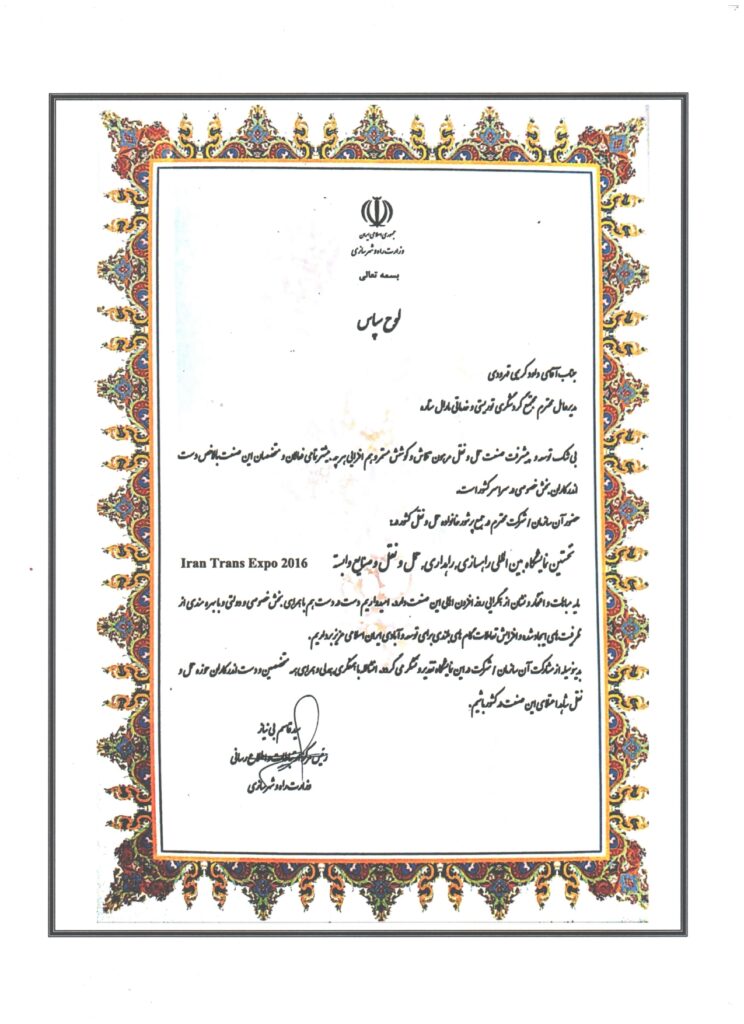 جمهوری اسلامی ایران
وزارت راه و شهرسازی
بسمه تعالی
لوح سپاس
جناب آقای داود کریمی
مدیرعامل محترم مجتمع گردشگری توریستی و خدماتی مارال ستاره
بی شک توسعه و پیشرفت صنعت حمل و نقل مرهون تلاش و کوشش مستمر و هم افزایی هر چه بیشتر تمامی فعالان و متخصصان این صنعت بالاخص دست
اندرکاران بخش خصوصی در سراسر کشور است.
حضور آن سازمان / شرکت محترم در جمع پرشور خانواده حمل و نقل کشور در:
نخستین نمایشگاه بین المللی راهسازی، راهداری، حمل و نقل و صنایع وابسته Iran Trans Expo 2016
مایه مباهات و افتخار و نشان از همگرایی روز افزون اهالی این صنعت دارد. امیدواریم دست در دست هم با همراهی بخش خصوصی و دولتی و با بهره مندی از
ظرفیت های ایجاد شده و افزایش تعاملات گام های بلندی برای توسعه و آبادی ایران اسلامی عزیز برداریم.
بدینوسیله از مشارکت آن سازمان / شرکت در این نمایشگاه تقدیر و تشکر می گردد. انشاالله با همفکری، همدلی و همراهی همه متخصصین و دست اندرکاران حوزه حمل و
نقل شاهد اعتلای این صنعت در کشور باشیم.
سید قاسم بی نیاز
رئیس مرکز ارتباطات و اطلاع رسانی
وزارت راه و شهرسازی